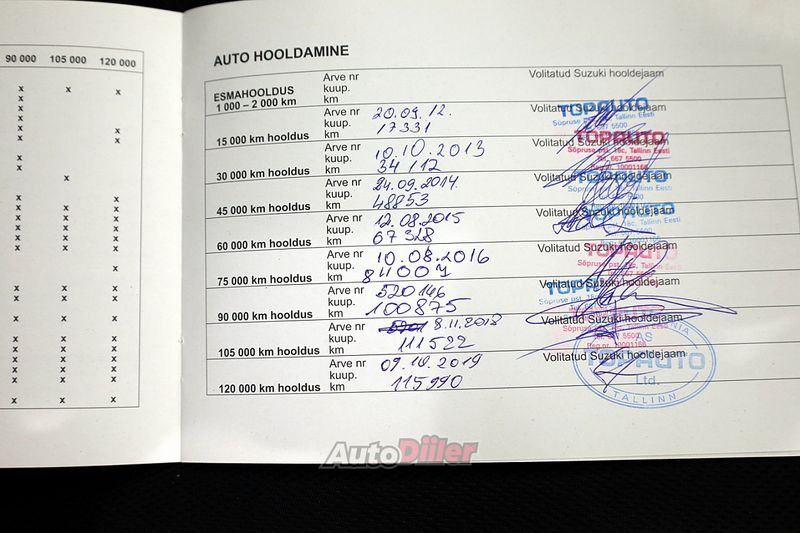 90 000 105 000 120 000
x x x
x
x
x
x
x x
x
x
x
x
x x
x x x
x x x
x x x
x x x
x x x
x
x x x
x x x
x x x
x x x
x x x
x x x
x x x
x x x
x x x
x x x
AUTO HOOLDAMINE
ESMAHOOLDUS
1 000 – 2 000 km
Arve nr
kuup.
km
Volitatud Suzuki hooldejaam
15 000 km hooldus
Arve nr
kuup. 20.09.12.
km 17331
Volitatud Suzuki hooldejaam
TOPAUTO
Sõpruse pst. Tallinn Eesti
30 000 km hooldus
Arve nr
kuup. 10.10.2013
km 34112
Volitatud Suzuki hooldejaam
TOPAUTO
Sõpruse pst. 18c, Tallinn Eesti
Tel. 667 5500
45 000 km hooldus
Arve nr
kuup. 24.09.2014.
km 48853
Volitatud Suzuki hooldejaam
60 000 km hooldus
Arve nr
kuup. 12.08.2015
km 67328
Volitatud Suzuki hooldejaam
75 000 km hooldus
Arve nr
kuup. 10.08.2016
km 84004
Volitatud Suzuki hooldejaam
90 000 km hooldus
Arve nr
kuup. 520146
km 100875
Volitatud Suzuki hooldejaam
105 000 km hooldus
Arve nr
kuup. 8.11.2018
km 111522
Volitatud Suzuki hooldejaam
120 000 km hooldus
Arve nr
kuup. 09.10.2019
km 115990
Volitatud Suzuki hooldejaam
AS
TOPAUTO
Ltd.
TALLINN
AutoDiiler